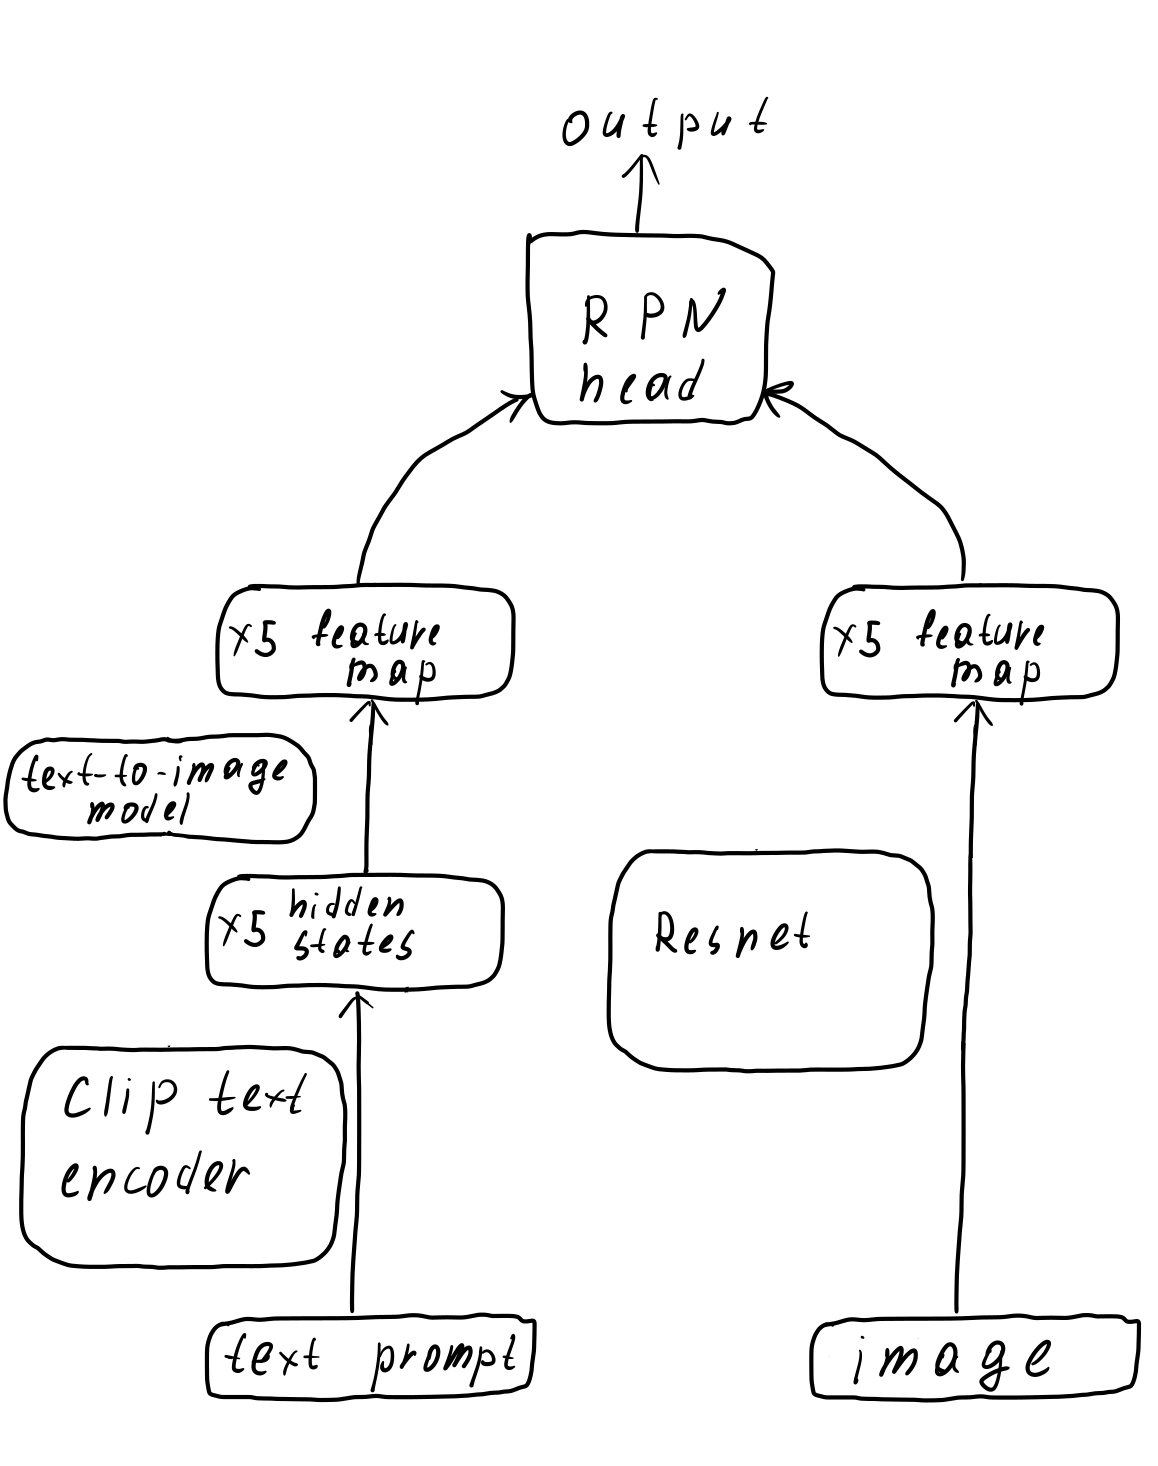 output
RPN
head
x5 feature
map
x5 feature
map
text-to-image
model
x5 hidden
states
Resnet
Clip text
encoder
text prompt
image